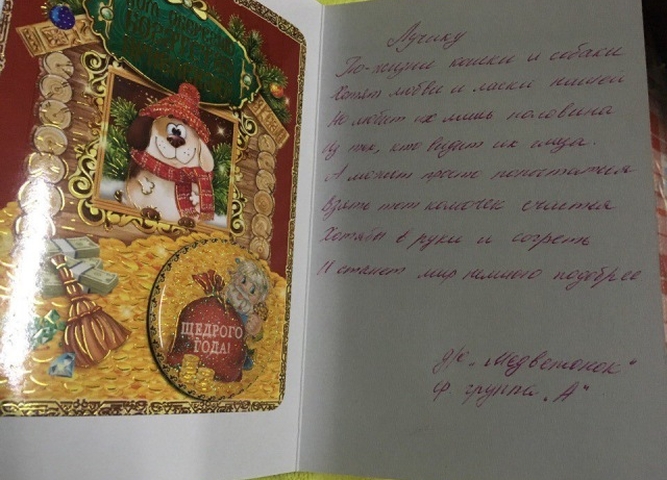 ЩЕДРОГО
ГОДА!
Лучику
По-жизни кошки и собаки
Хотят любви и ласки нашей
Но любит их лишь половина
Из тех, кто видит их лица.
А может просто попостараться
Взять тот комочек счастья
Хотябы в руки и согреть
И станет мир немного подобрее
д/с "Медвежонок"
гр. группа "А"